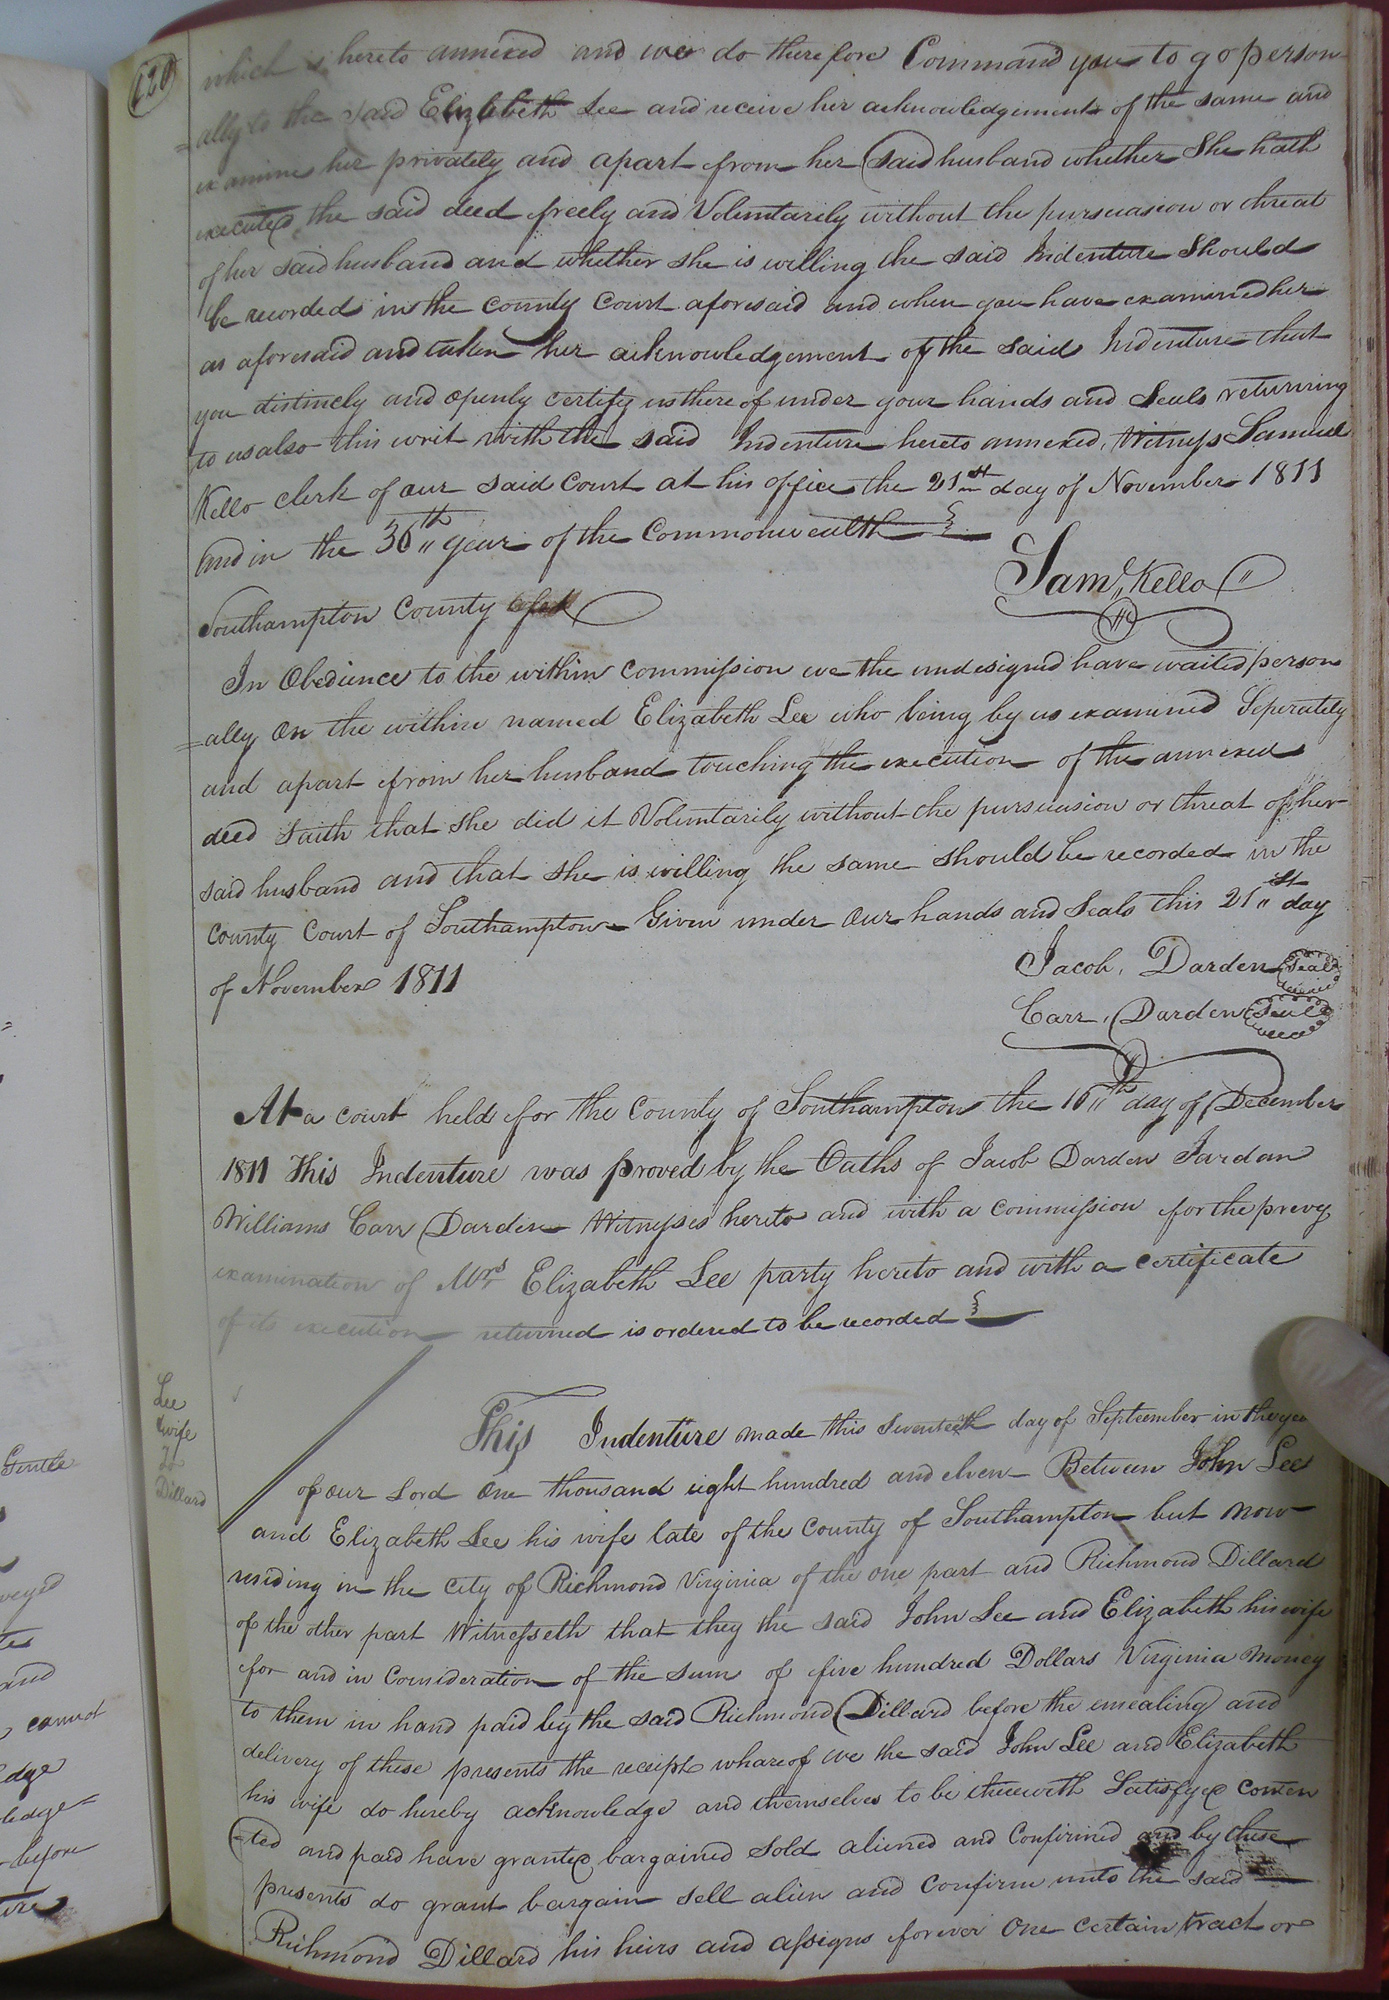 120
which is hereto annexed and we do therefore Command you to go person
=ally to the said Elizabeth Lee and receive her acknowledgement of the same and
examine her privately and apart from her said husband whether She hath
executed the said deed freely and Voluntarily without the pursuasion or threat
of her said husband and whether she is willing the said Indenture Should
be recorded in the County Court aforesaid and when you have examined her
as aforesaid and taken her acknowledgement of the said Indenture that
you distincly and openly certify us there of under your hands and Seals returning
to us also this writ with the said Indenture hereto annexed, Witness Samuel
Kello clerk of our said Court at his office the 21st day of November 1811
and in the 36th year of the Commonwealth
Saml, Kello
Southampton County
In Obedience to the within Commission we the undesigned have waited person
=ally On the within named Elizabeth Lee who being by us examined Seperately
and apart from her husband touching the execution of the annexed
deed Saith that She did it Voluntarily without the pursuasion or threat of her
said husband and that she is willing the same should be recorded in the
County Court of Southampton Given under our hands and Seals this 21st day
of November 1811
Jacob, Darden Seal
Carr, Darden Seal
At a court held for the County of Southampton the 16th day of December
1811 This Indenture was proved by the Oaths of Jacob Darden Jordan
Williams Carr Darden Witnesses hereto and with a Commission for the prevy
examination of Mrs Elizabeth Lee party hereto and with a certificate
of its execution returned is ordered to be recorded
Lee
& wife
To
Dillard
This Indenture made this Seventeeth day of September in the yea
of our Lord One thousand eight hundred and elven Between John Lee
and Elizabeth Lee his wife late of the County of Southampton but now
residing in the City of Richmond Virginia of the one part and Richmond Dillard
of the other part Witnesseth that they the said John Lee and Elizabeth his wife
for and in Consideration of the sum of five hundred Dollars Virginia Money
to them in hand paid by the said Richmond Dillard before the ensealing and
delivery of these presents the receipt whareof We the said John Lee and Elizabeth
his wife do hereby acknowledge and themselves to be therewith Satisfyed Conten
=ted and paid have granted bargained Sold aliened and Confirmed and by these
presents do grant bargain sell alien and Confirm unto the said
Richmond Dillard his heirs and assigns forever One certain tract or
Gentle
and
cannot
before